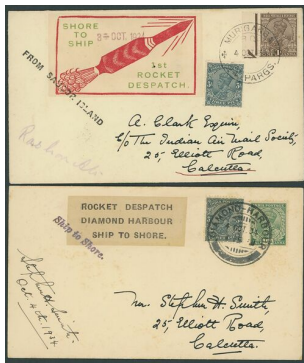 SHORE
TO
SHIP
OCT. 1934
1st
ROCKET
DESPATCH.
FROM SAUGOR ISLAND
A. Clark Esquire
C/o The Indian Air Mail Society,
25, Elliott Road,
Calcutta.
ROCKET DESPATCH
DIAMOND HARBOUR
SHIP TO SHORE.
Ship to Shore.
DIAMOND-HARBOUR
Stephen H. Smith.
Oct 4th. 1934
Mr. Stephen H. Smith,
25, Elliott Road,
Calcutta.